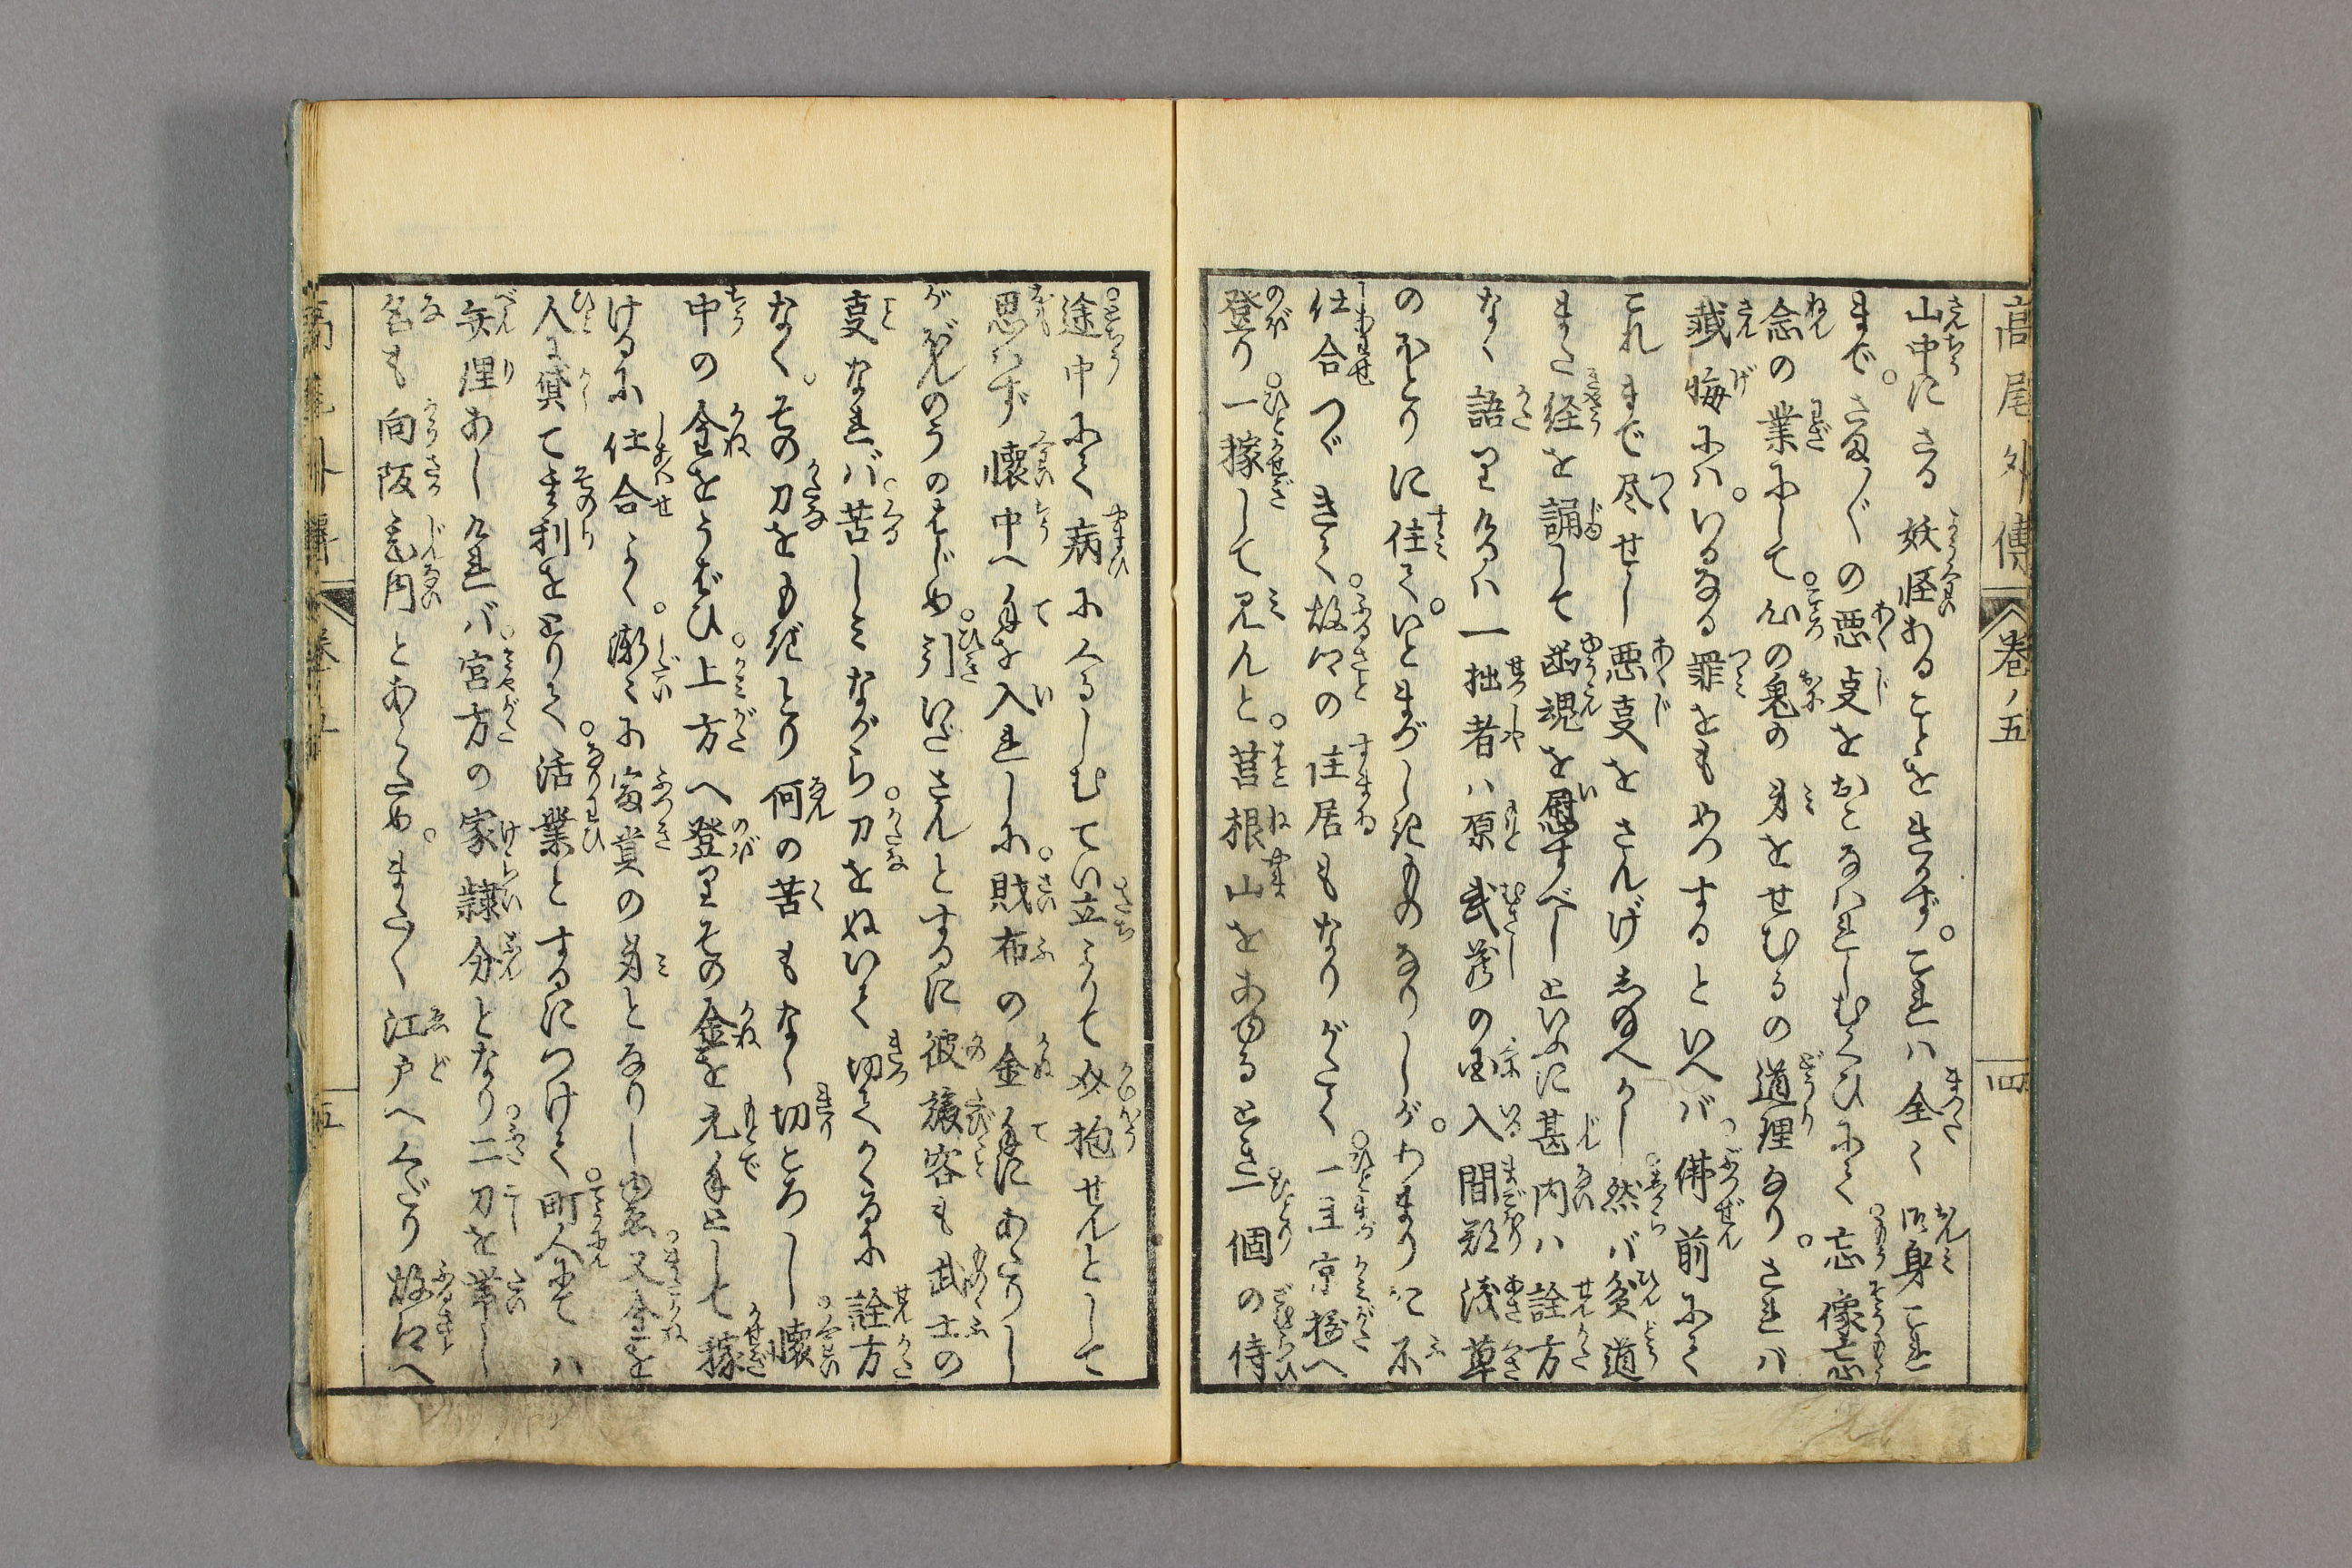 高尾外傳 巻ノ五 四
山中にさる妖怪あることをきかず。これハ全く御身これ
まで。さま〲の悪事をおこなハれしむくひにて忘像忘
念の業にして。心の鬼の身をせむるの道理なり。されバ
懺悔にハ。いかなる罪をもめつするといへバ。佛前にて
これまで尽せし悪事をさんげし給へかし。然バ貧道
また経を誦して幽魂を慰すべしといふに甚内ハ詮方
なく語りけるハ一拙者ハ原武蔵の国入間郡浅草
のほとりに住て。いとまづしきものなりしが。あまりに不
仕合つゞきて。故郷の住居もなりがたく。一まづ京摂へ
登り。一稼して見んと。筥根山をあゆるとき。一個の侍
途中にて病にくるしむてい立よりて介抱せんとして
思ハず懐中へ手を入れしに。財布の金手にあたりし
がぜんのうのはじめ。引いださんとするに彼旅客も武士の
事なれバ。苦しみながら。刀をぬいて切てかゝるに詮方
なく。その刀をもぎとり何の苦もなく切ころし。懐
中の金をうばひ。上方へ登りその金を元手として稼
けるに仕合よく。漸〻に富貴の身となりしゆゑ又金を
人に貸て其利をとりて。活業とするにつけて。町人にてハ
弁理あしけれバ。宮方の家隷分となり。二刀を帯し
名も向阪甚内とあらため。またく江戸へくだり故郷へ